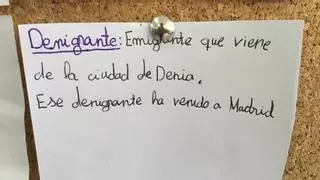 Denigrante: Emigrante que viene
de la ciudad de Denia.
Ese denigrante ha venido a Madrid